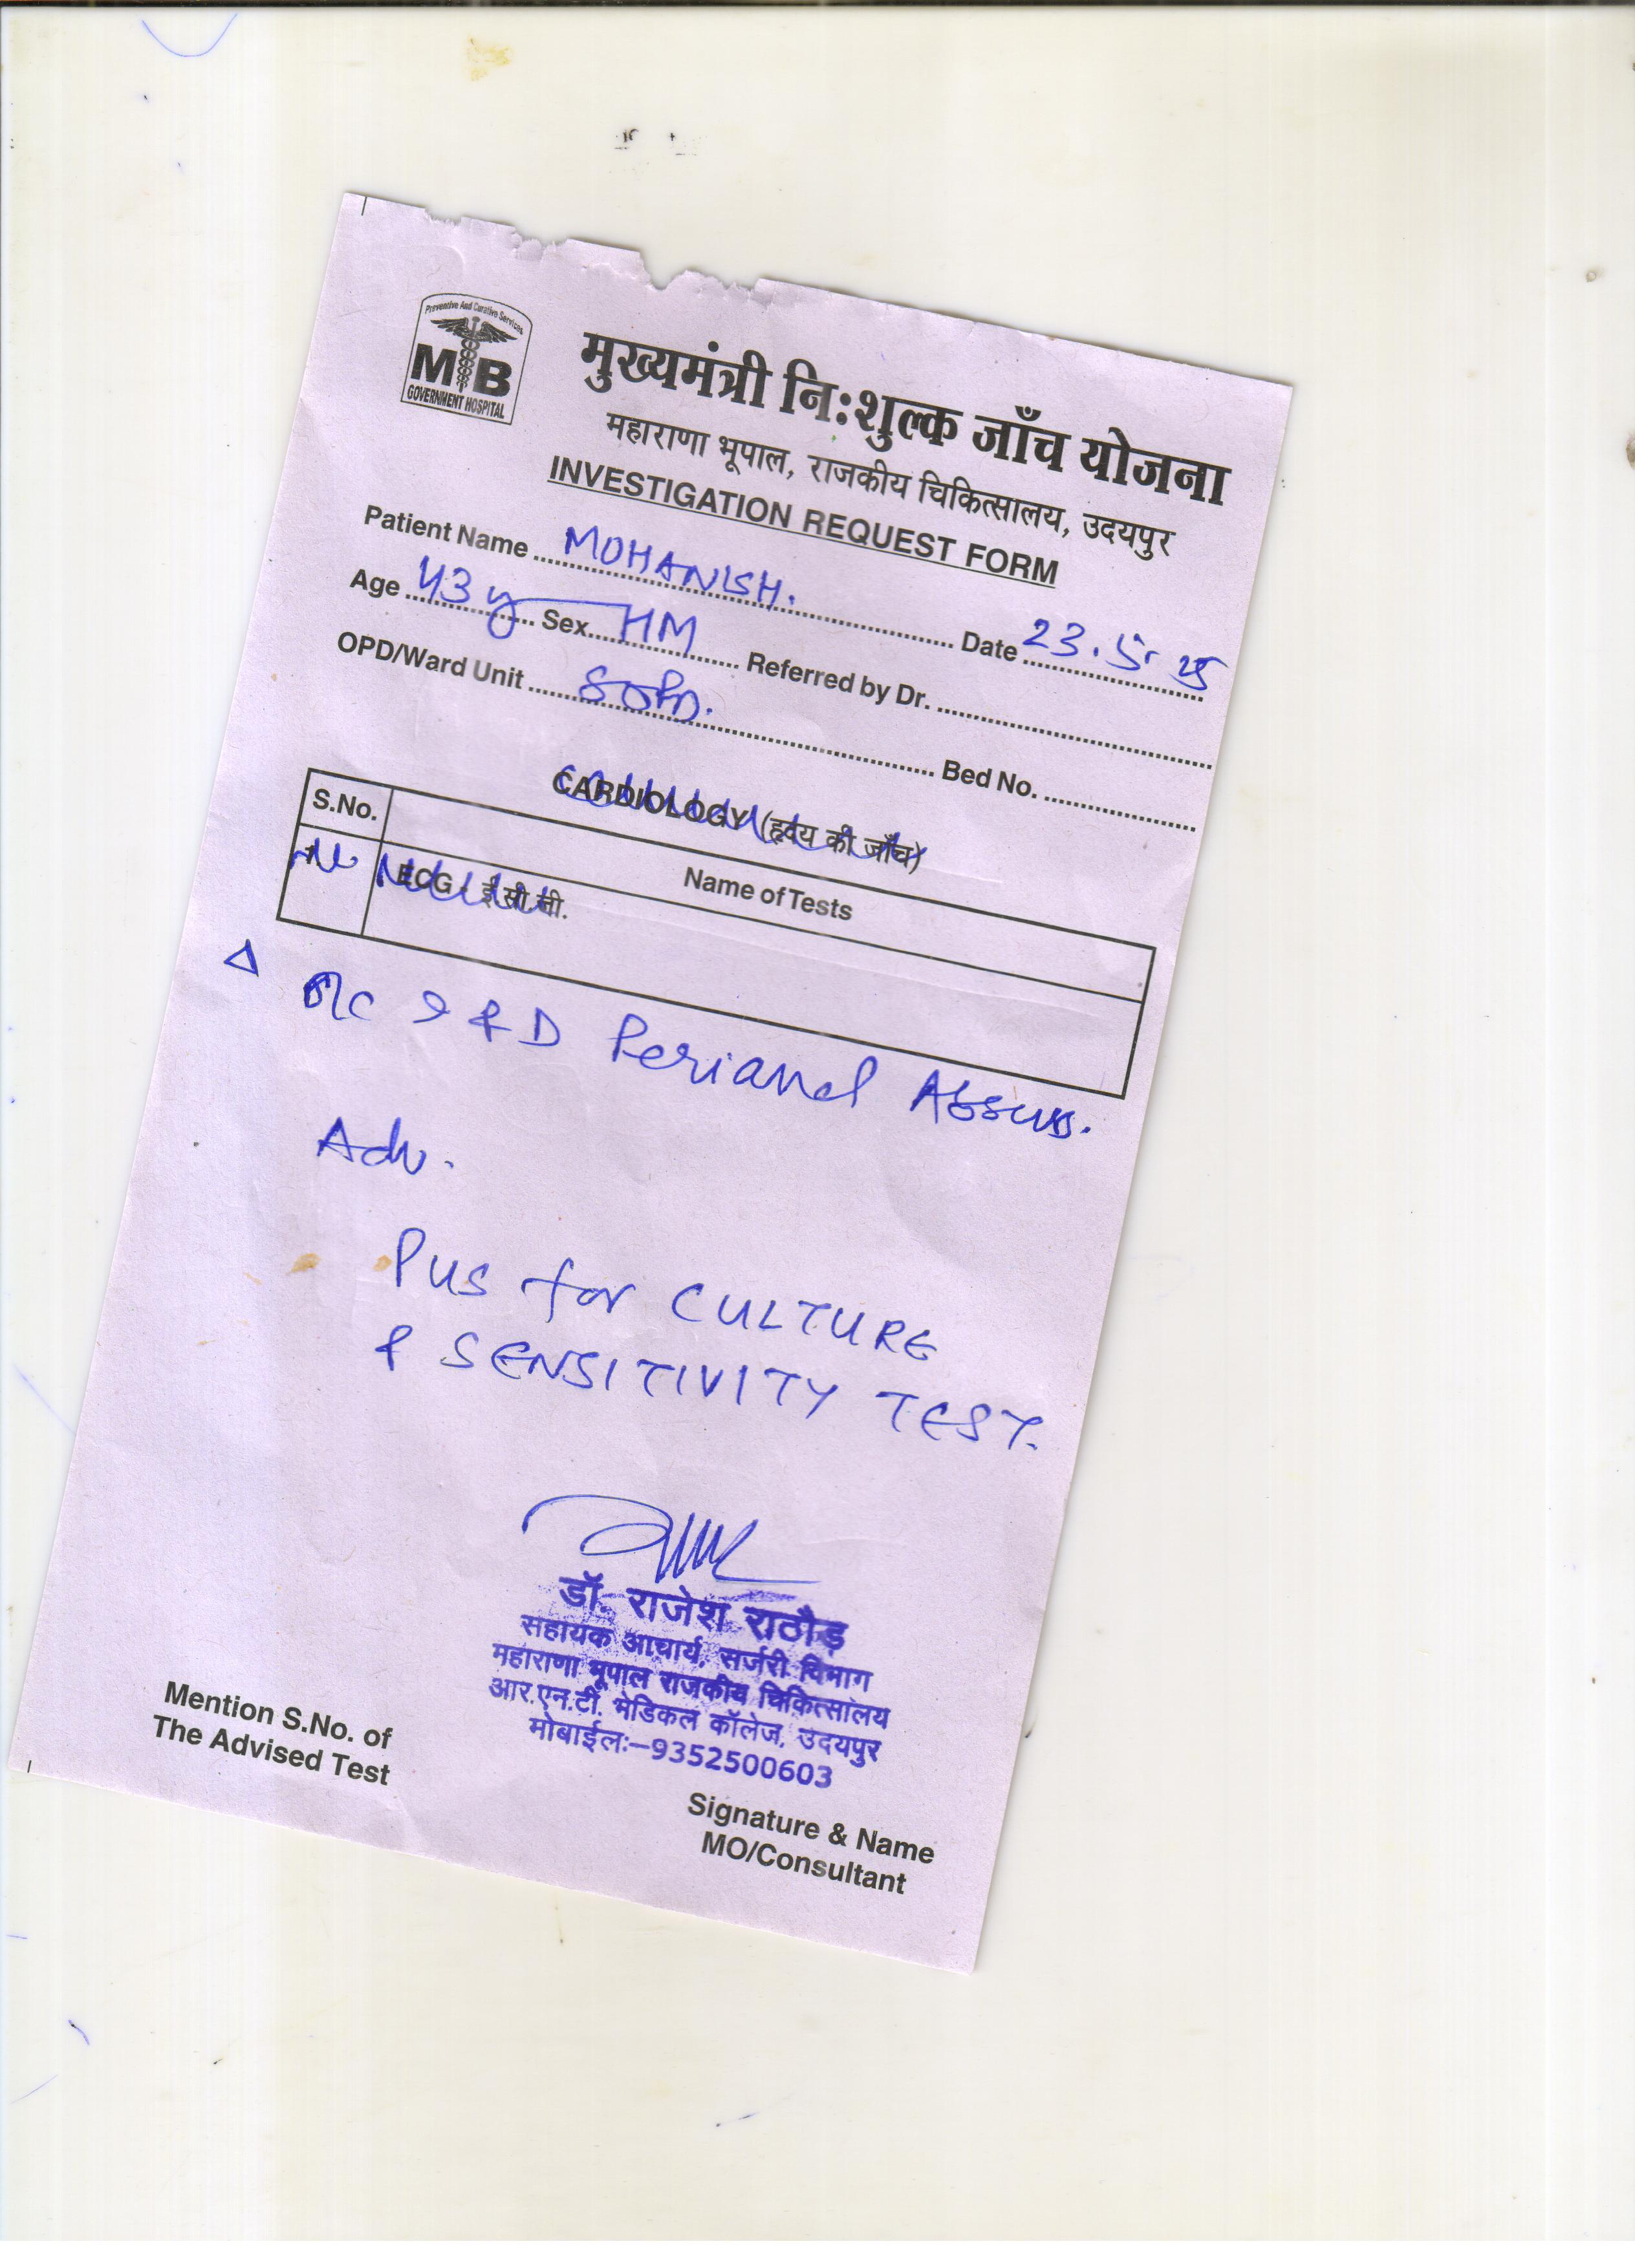 Preventive And Curative Services
MB
GOVERNMENT HOSPITAL
मुख्यमंत्री निःशुल्क जाँच योजना
महाराणा भूपाल, राजकीय चिकित्सालय, उदयपुर
INVESTIGATION REQUEST FORM
Patient Name MOHANISH. Date 23.5.25
Age 43 y Sex HM Referred by Dr.
OPD/Ward Unit Bed No.
CARDIOLOGY (हृदय की जाँच)
S.No. Name of Tests
ECG - ई.सी.जी.
Δ I & D Perianal Abscess.
Adv.
Pus for CULTURE
& SENSITIVITY TEST.
डॉ. राजेश राठौड़
सहायक आचार्य, सर्जरी विभाग
महाराणा भूपाल राजकीय चिकित्सालय
आर.एन.टी. मेडिकल कॉलेज, उदयपुर
मोबाईलः–9352500603
Mention S.No. of
The Advised Test
Signature & Name
MO/Consultant